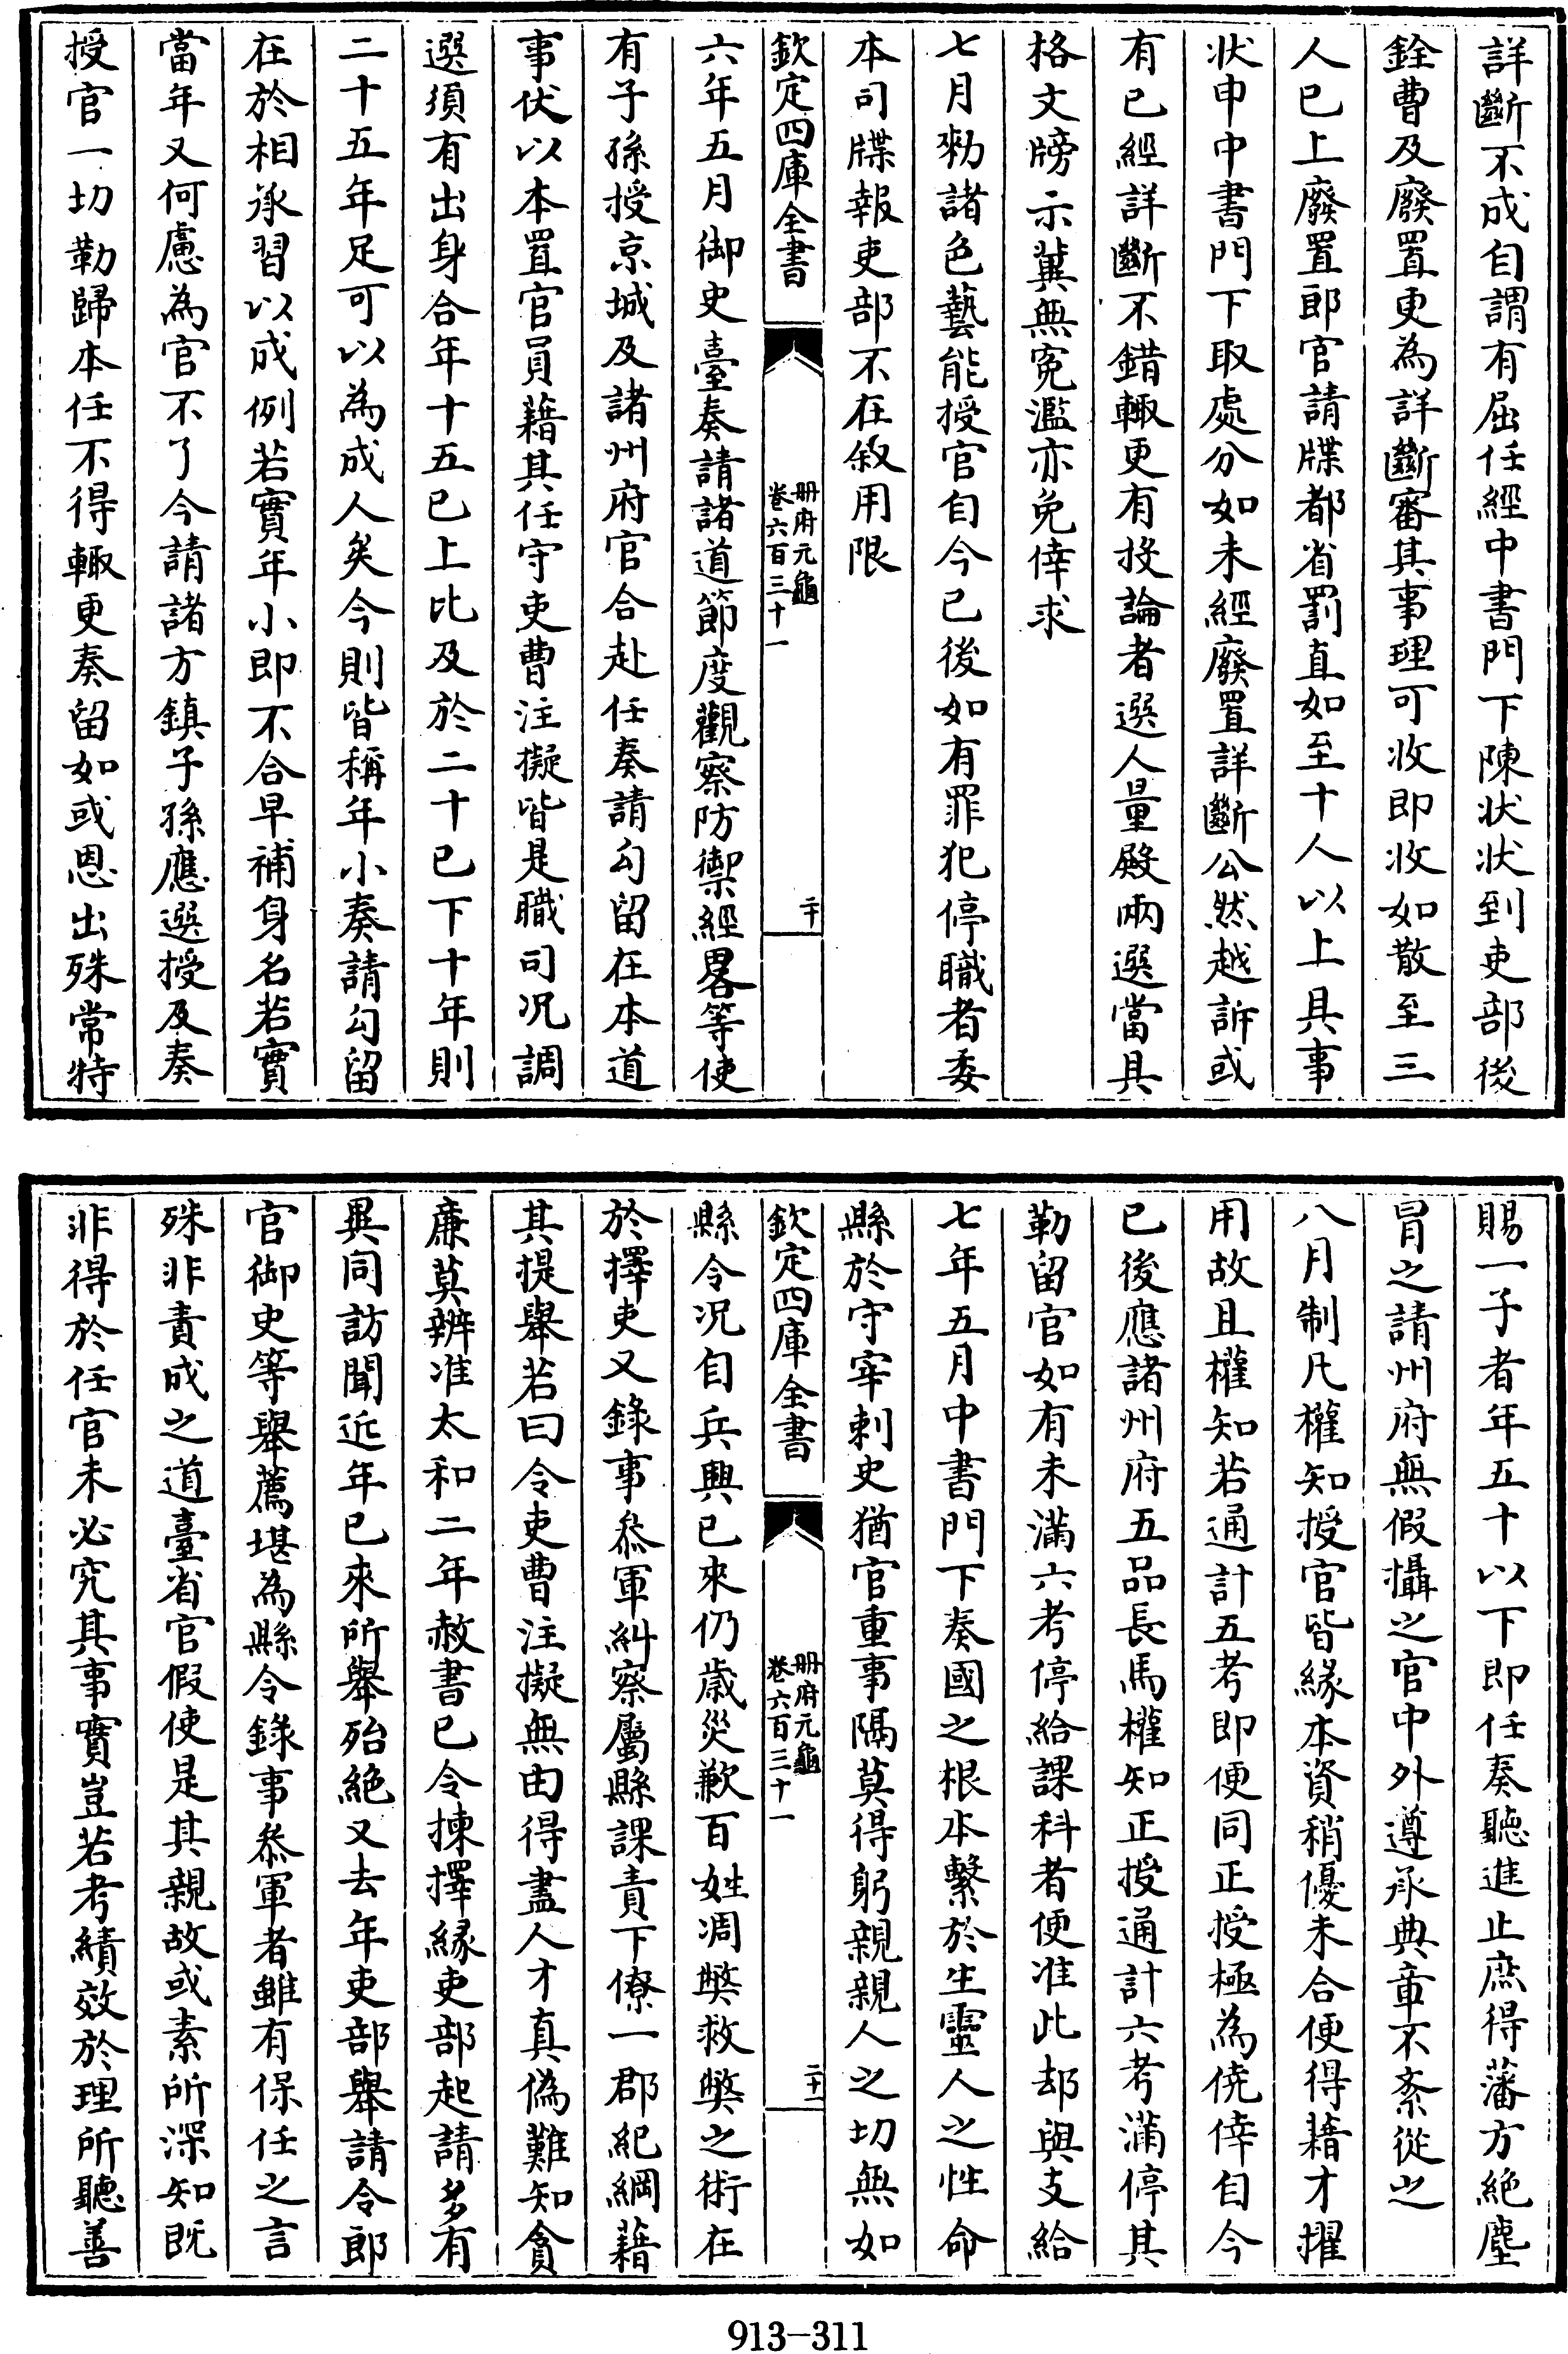 詳斷不成自謂有屈任經中書門下陳狀狀到吏部後
銓曹及廢置更為詳斷審其事理可收即收如散至三
人已上廢置郎官請牒都省罰直如至十人以上具事
狀申中書門下取處分如未經廢置詳斷公然越訴或
有已經詳斷不錯輙更有投論者選人量殿兩選當具
格文牓示冀無寃濫亦免倖求
七月勑諸色藝能授官自今已後如有罪犯停職者委
本司牒報吏部不在敘用限
欽定四庫全書
冊府元龜
卷六百三十一
二十
六年五月御史臺奏請諸道節度觀察防禦經畧等使
有子孫授京城及諸州府官合赴任奏請勾留在本道
事伏以本置官員藉其任守吏曹注擬皆是職司况調
選須有出身合年十五已上比及於二十已下十年則
二十五年足可以為成人矣今則皆稱年小奏請勾留
在於相承習以成例若實年小即不合早補身名若實
當年又何慮為官不了今請諸方鎮子孫應選授及奏
授官一切勒歸本任不得輙更奏留如或恩出殊常特
賜一子者年五十以下即任奏聽進止庶得藩方絶塵
冒之請州府無假攝之官中外遵承典章不紊從之
八月制凡權知授官皆緣本資稍優未合便得藉才擢
用故且權知若通計五考即便同正授極為僥倖自今
已後應諸州府五品長馬權知正授通計六考滿停其
勒留官如有未滿六考停給課科者便准此却與支給
七年五月中書門下奏國之根本繫於生靈人之性命
縣於守宰刺史猶官重事隔莫得躬親親人之切無如
欽定四庫全書
冊府元龜
卷六百三十一
二十一
縣令况自兵興已來仍歲災歉百姓凋弊救弊之術在
於擇吏又錄事叅軍糾察屬縣課責下僚一郡紀綱藉
其提舉若曰令吏曹注擬無由得盡人才真偽難知貪
廉莫辨准太和二年赦書已令揀擇緣吏部起請多有
異同訪聞近年已來所舉殆絶又去年吏部舉請令郎
官御史等舉薦堪為縣令錄事叅軍者雖有保任之言
殊非責成之道臺省官假使是其親故或素所深知既
非得於任官未必究其事實豈若考績效於理所聽善
913-311